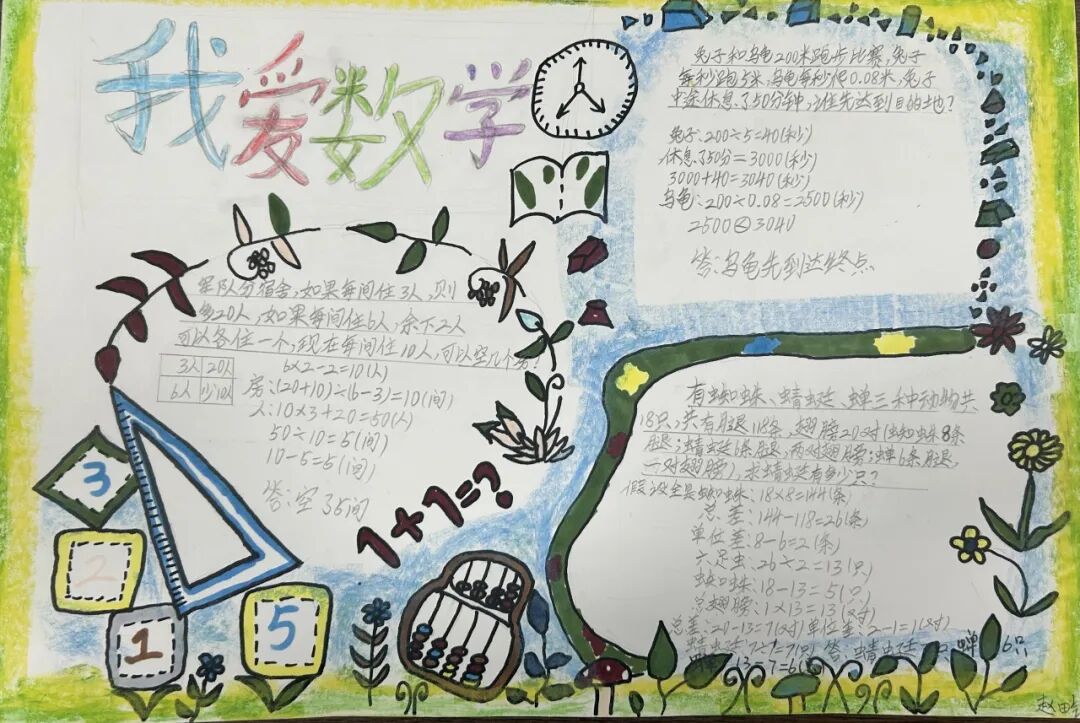 我爱数学
兔子和乌龟200米跑步比赛,兔子
每秒跑5米,乌龟每秒爬0.08米,兔子
中途休息了50分钟,谁先达到目的地?
兔子:200÷5=40(秒)
休息了50分=3000(秒)
3000+40=3040(秒)
乌龟:200÷0.08=2500(秒)
2500<3040
答:乌龟先到达终点
军队分宿舍,如果每间住3人,则
多20人,如果每间住6人,余下2人
可以各住一个,现在每间住10人,可以空几个房?
3人 20人
6人 少10人
6×2-2=10(人)
房:(20+10)÷(6-3)=10(间)
人:10×3+20=50(人)
50÷10=5(间)
10-5=5(间)
答:空5间
3
2
1
5
1+1=?
有蜘蛛、蜻蜓、蝉三种动物共
18只,共有腿118条,翅膀20对(蜘蛛8条
腿;蜻蜓6条腿,两对翅膀;蝉6条腿,
一对翅膀),求蜻蜓有多少只?
假设全是蜘蛛:18×8=144(条)
总差:144-118=26(条)
单位差:8-6=2(条)
六足虫:26÷2=13(只)
蜘蛛:18-13=5(只)
总翅膀:1×13=13(对)
总差:20-13=7(对)单位差:2-1=1(对)
蜻蜓:7÷1=7(只) 答:蜻蜓 只 蝉6只
13-7=6
赵